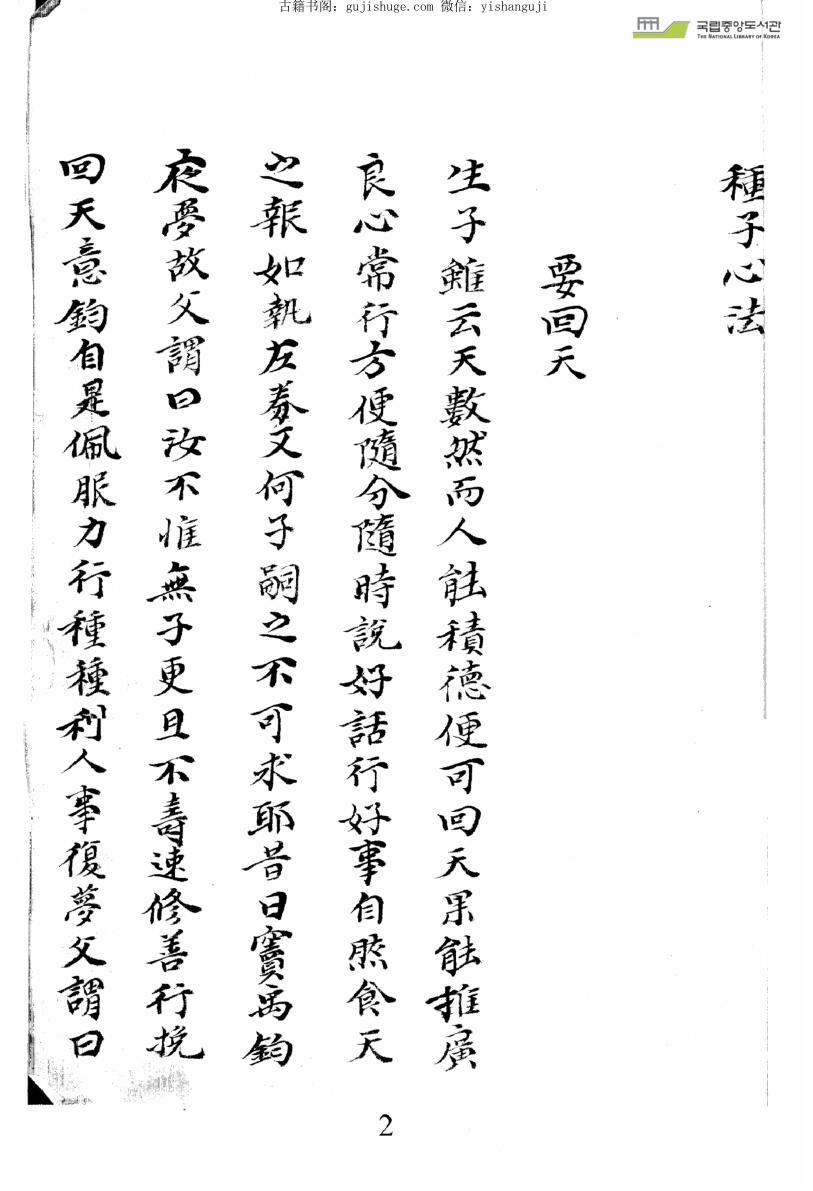 古籍书阁：gujishuge.com 微信：yishanguji
국립중앙도서관
THE NATIONAL LIBRARY OF KOREA
種子心法
要回天
生子雖云天數然而人能積德便可回天果能推廣
良心常行方便隨分隨時說好話行好事自然食天
之報如執左券又何子嗣之不可求耶昔日竇禹鈞
夜夢故父謂曰汝不惟無子更且不壽速修善行挽
回天意鈞自是佩服力行種種利人事復夢父謂曰
2